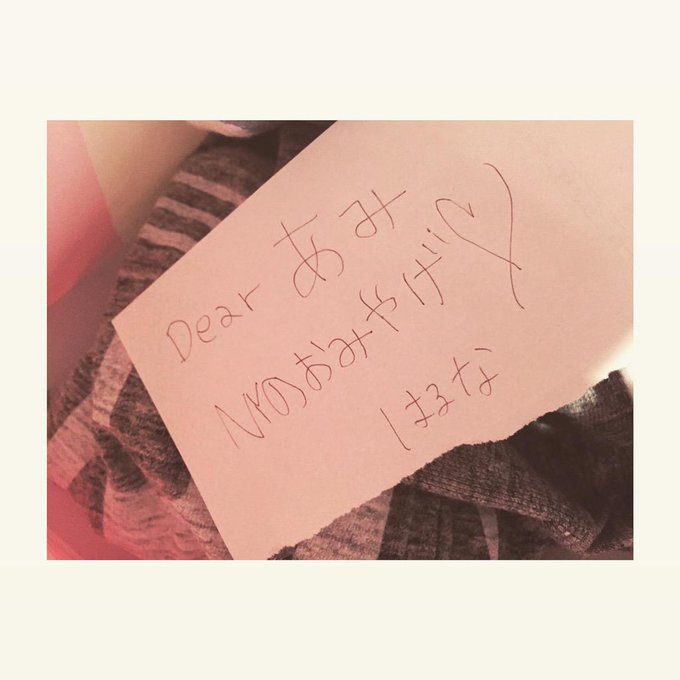 Dear あみ
NYのおみやげ♡
はるな